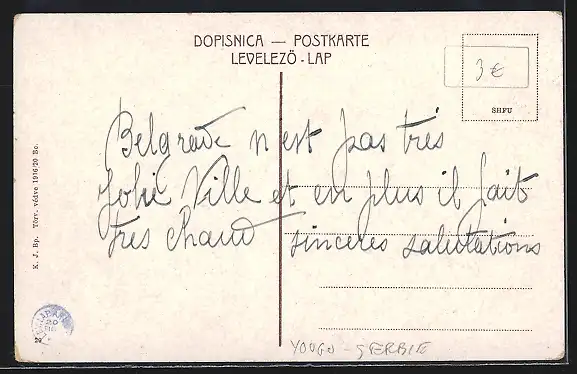 DOPISNICA — POSTKARTE
LEVELEZÖ - LAP
3 €
SHFU
Belgrade n'est pas très
Jolie Ville et en plus il fait
très chaud sincères salutations
K. J. Bp. Törv. védve 1916/20 Bo.
YOUGO - SERBIE